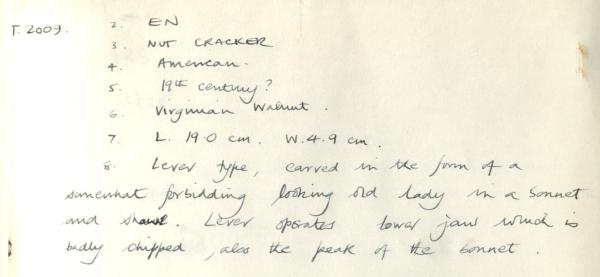 T. 2009. 2. EN
3. NUT CRACKER
4. American.
5. 19th century?
6. Virginian Walnut.
7. L. 19.0 cm. W. 4.9 cm.
8. Lever type, carved in the form of a
somewhat forbidding looking old lady in a bonnet
and shawl. Lever operates lower jaw which is
badly chipped, also the peak of the bonnet.